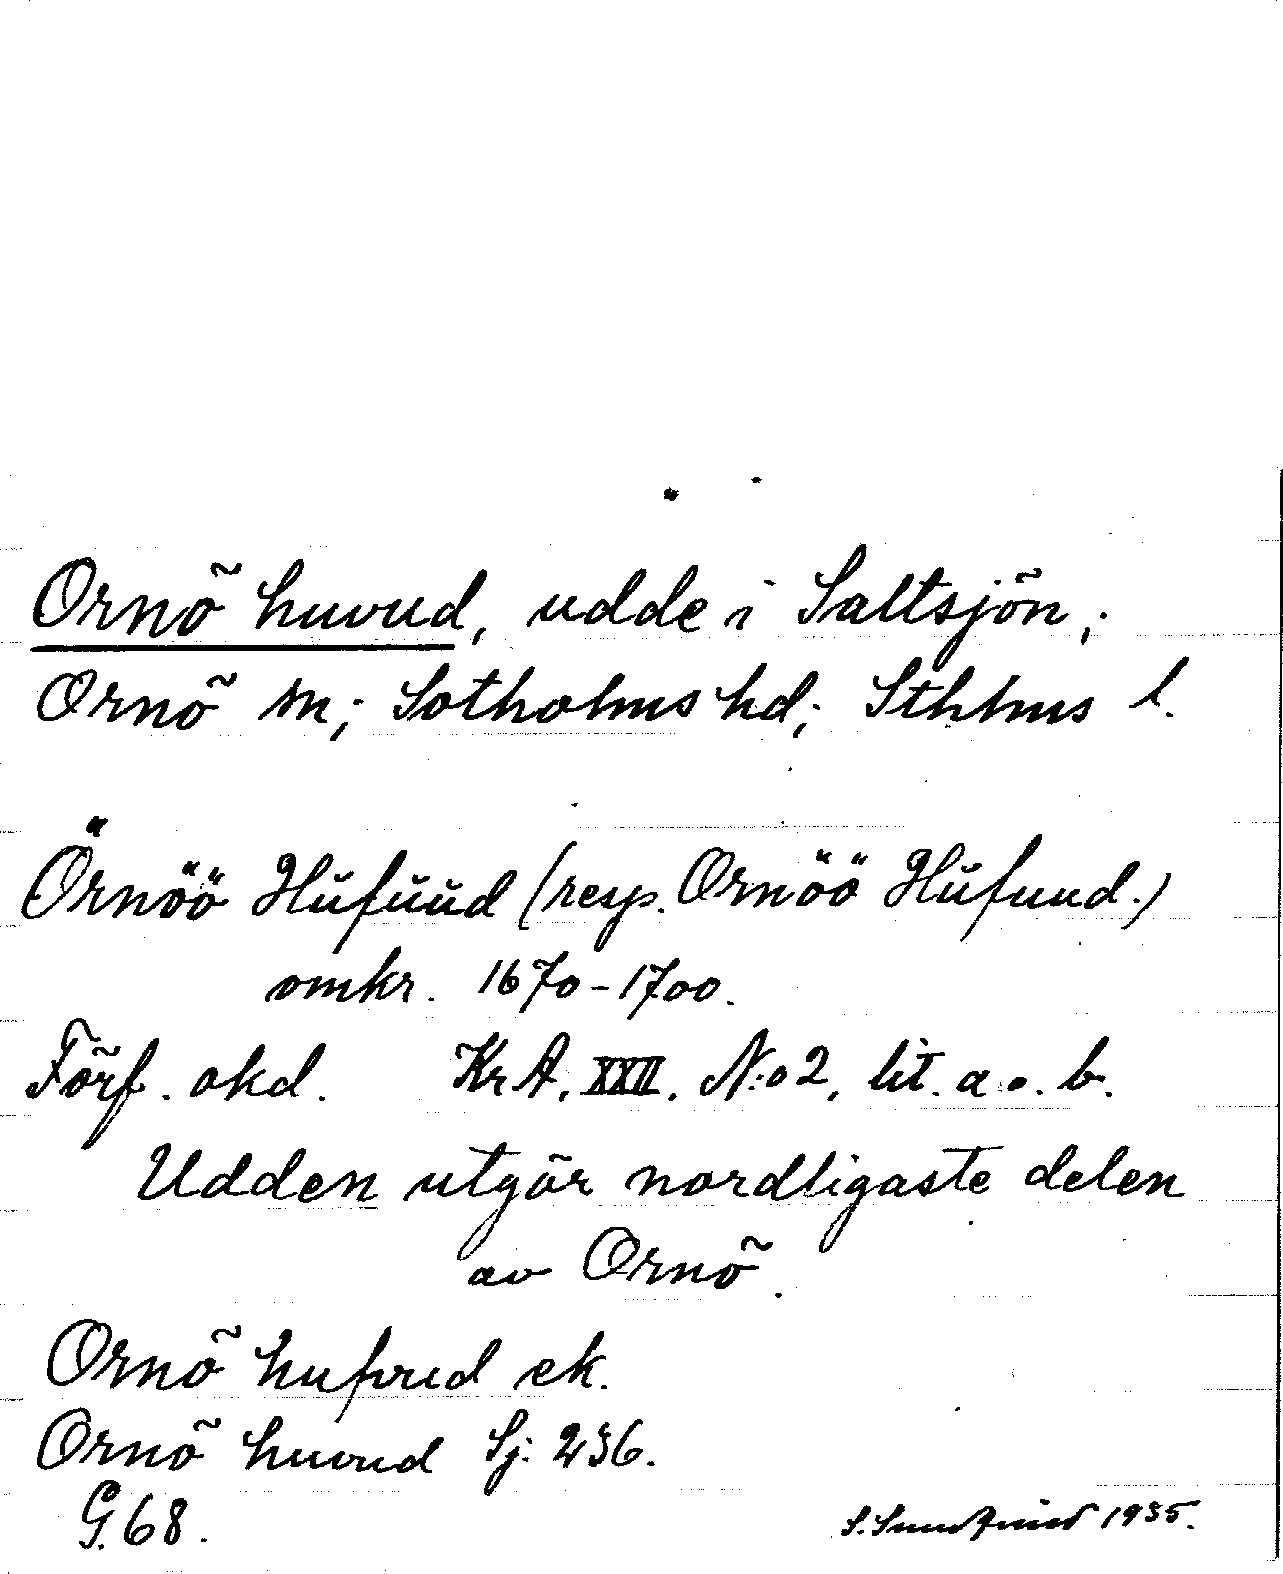 Ornö huvud, udde i Saltsjön;
Ornö sn; Sotholms hd; Sthlms l.
Örnöö Hŭfŭŭd (resp. Ornöö Hŭfuud.)
omkr. 1670-1700.
Förf. okd. KrA. XXII. N:o 2, lit. a o. b.
Udden utgör nordligaste delen
av Ornö.
Ornö hufvud ek.
Ornö huvud Sj: 236.
G. 68.
S. 1935.